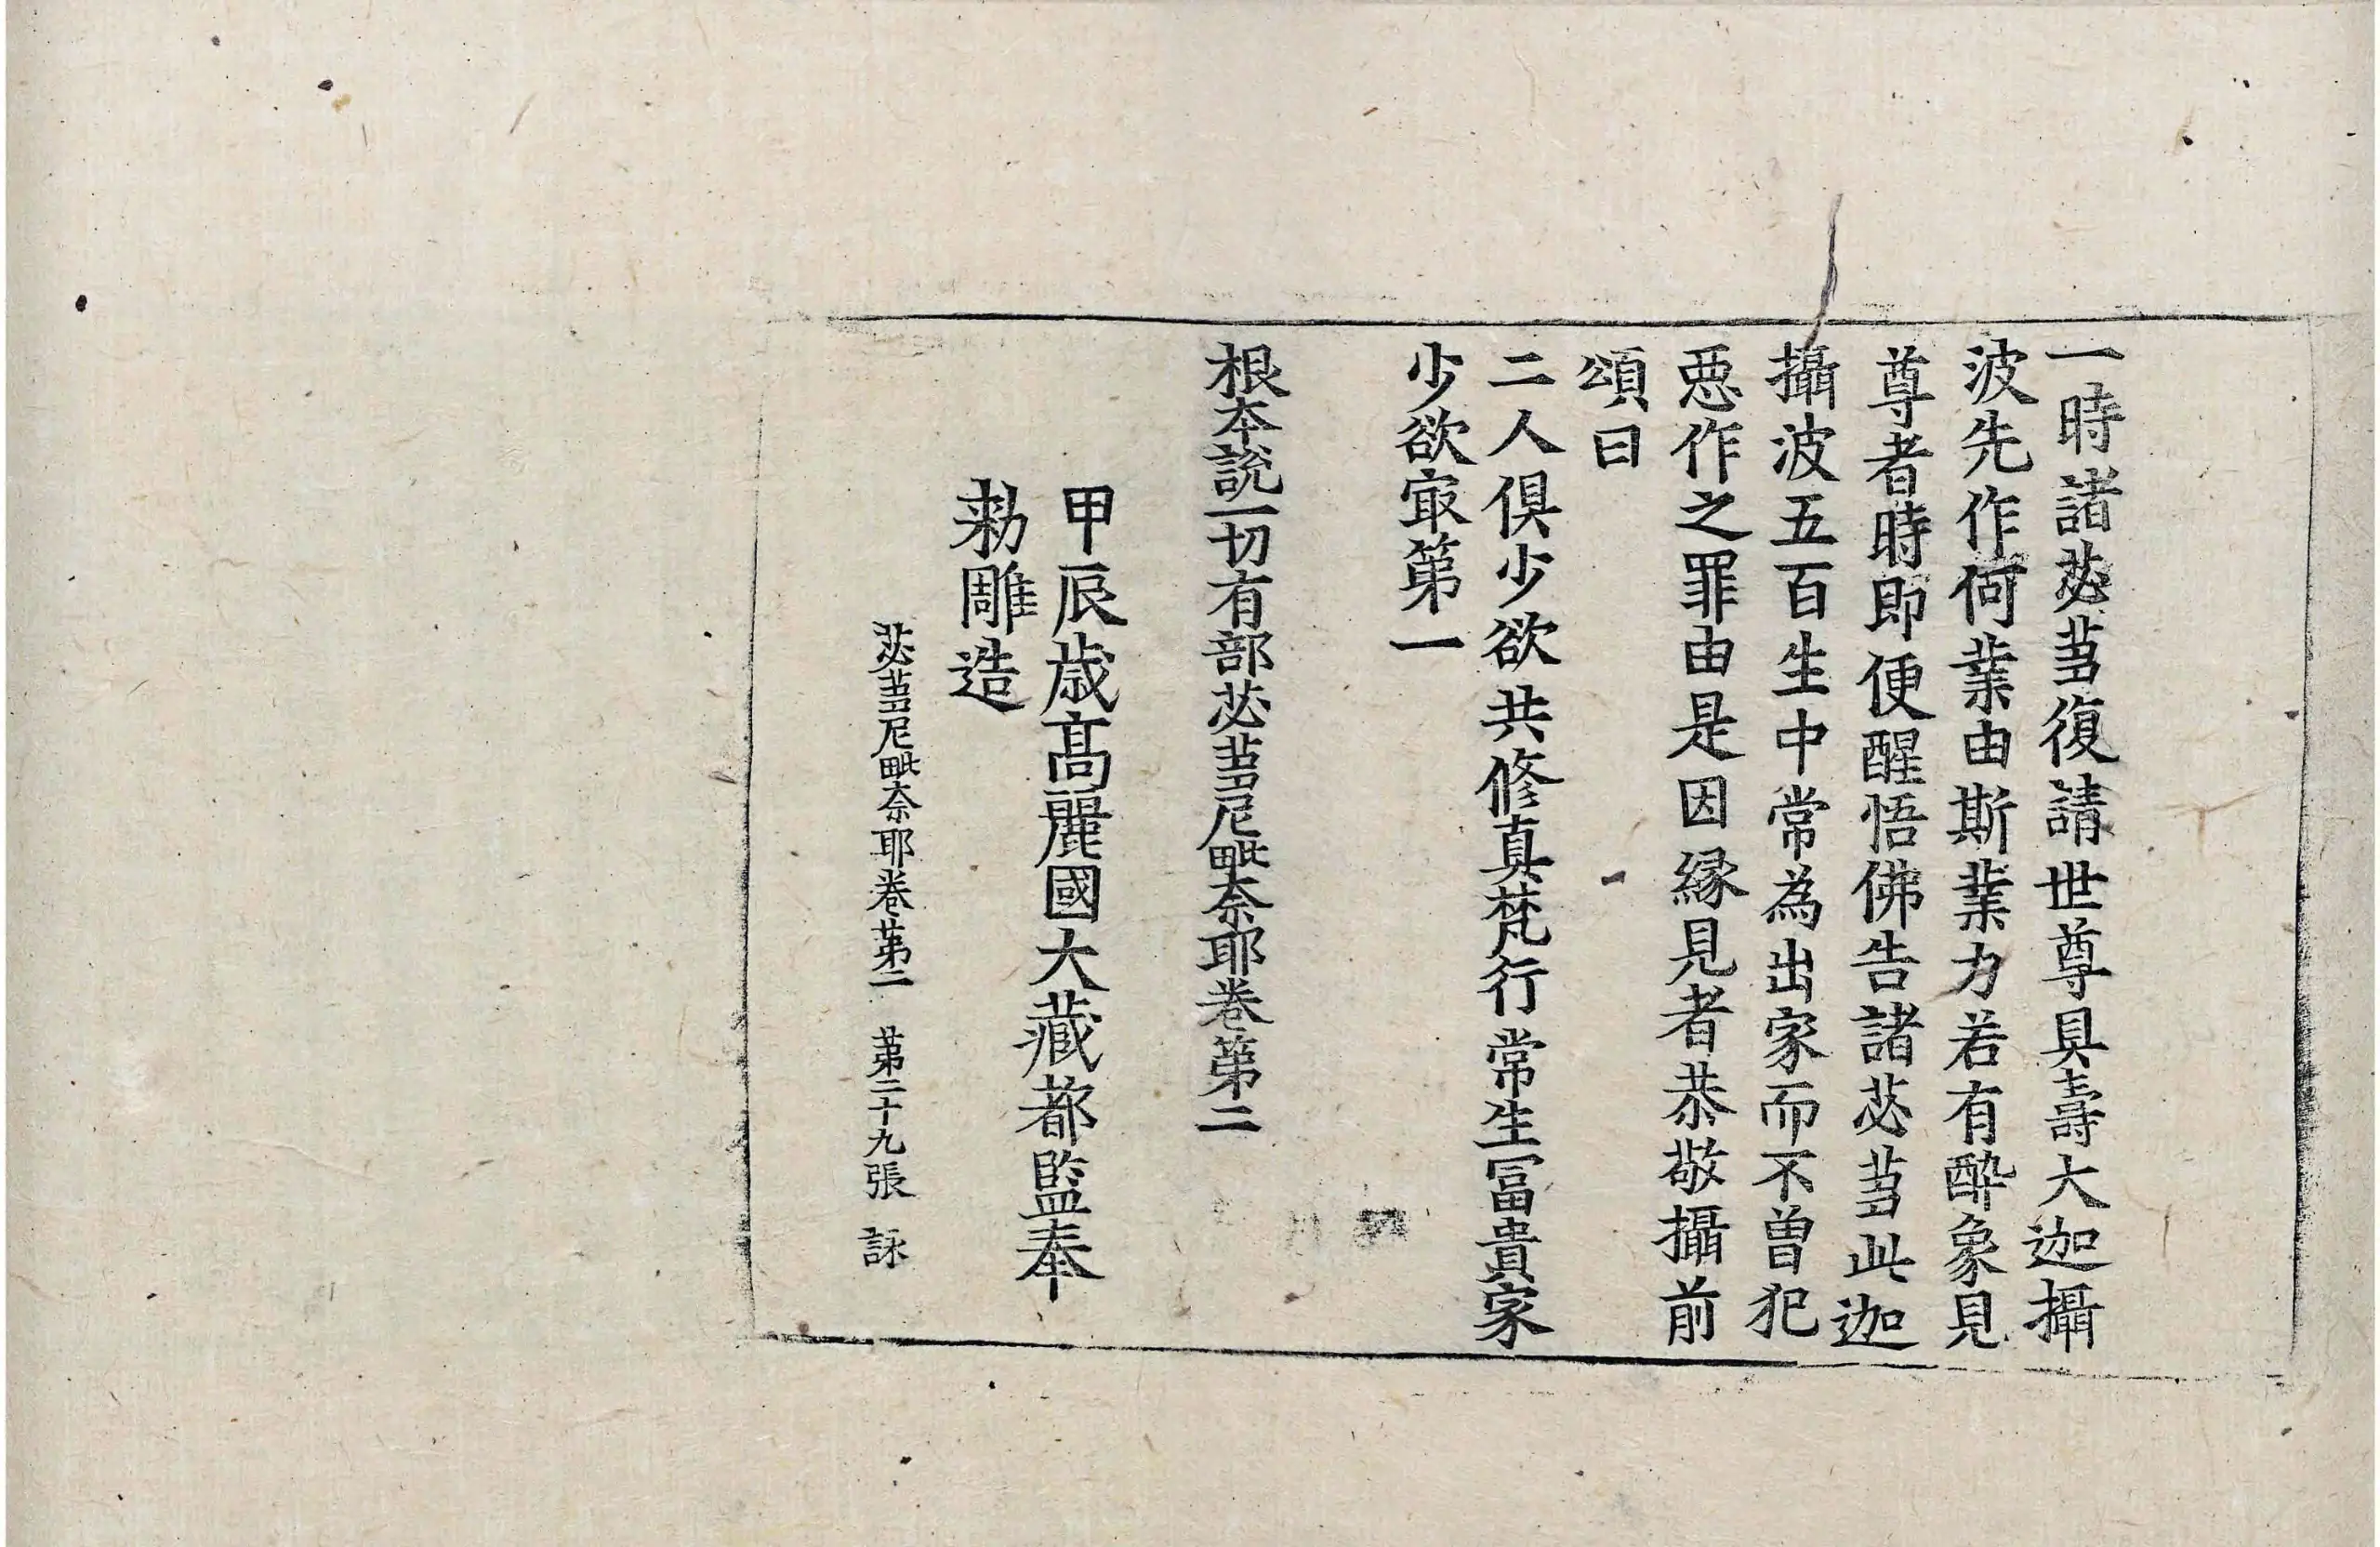 一時諸苾芻復請世尊具壽大迦攝
波先作何業由斯業力若有醉象見
尊者時即便醒悟佛告諸苾芻此迦
攝波五百生中常為出家而不曾犯
惡作之罪由是因緣見者恭敬攝前
頌曰
二人俱少欲共修真梵行常生冨貴家
少欲㝡第一
根本說一切有部苾芻尼毗奈耶卷第二
甲辰歲高麗國大藏都監奉
勑雕造
苾芻尼毗奈耶卷第二 第二十九張 詠